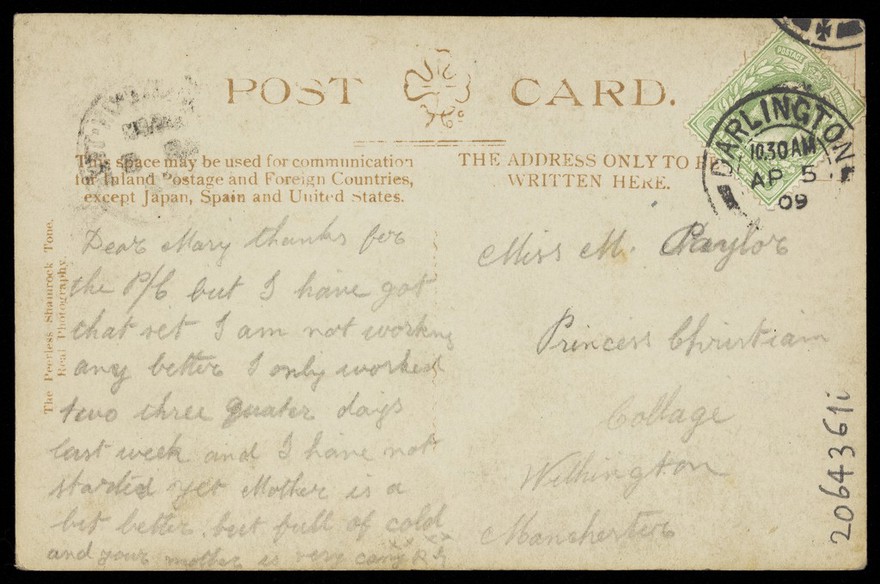 POST CARD.
This space may be used for communication
for Inland Postage and Foreign Countries,
except Japan, Spain and United States.
THE ADDRESS ONLY TO BE
WRITTEN HERE.
DARLINGTON
10.30 AM
AP 5
09
POSTAGE
The Peerless Shamrock Tone.
Real Photography.
Dear Mary thanks for
the P/C but I have got
that set I am not working
any better I only worked
two three quater days
last week and I have not
started yet Mother is a
bit better but full of cold
and your mother is very
Miss M.
Princess Christiain
Collage
Withington
Manchester
2064361i